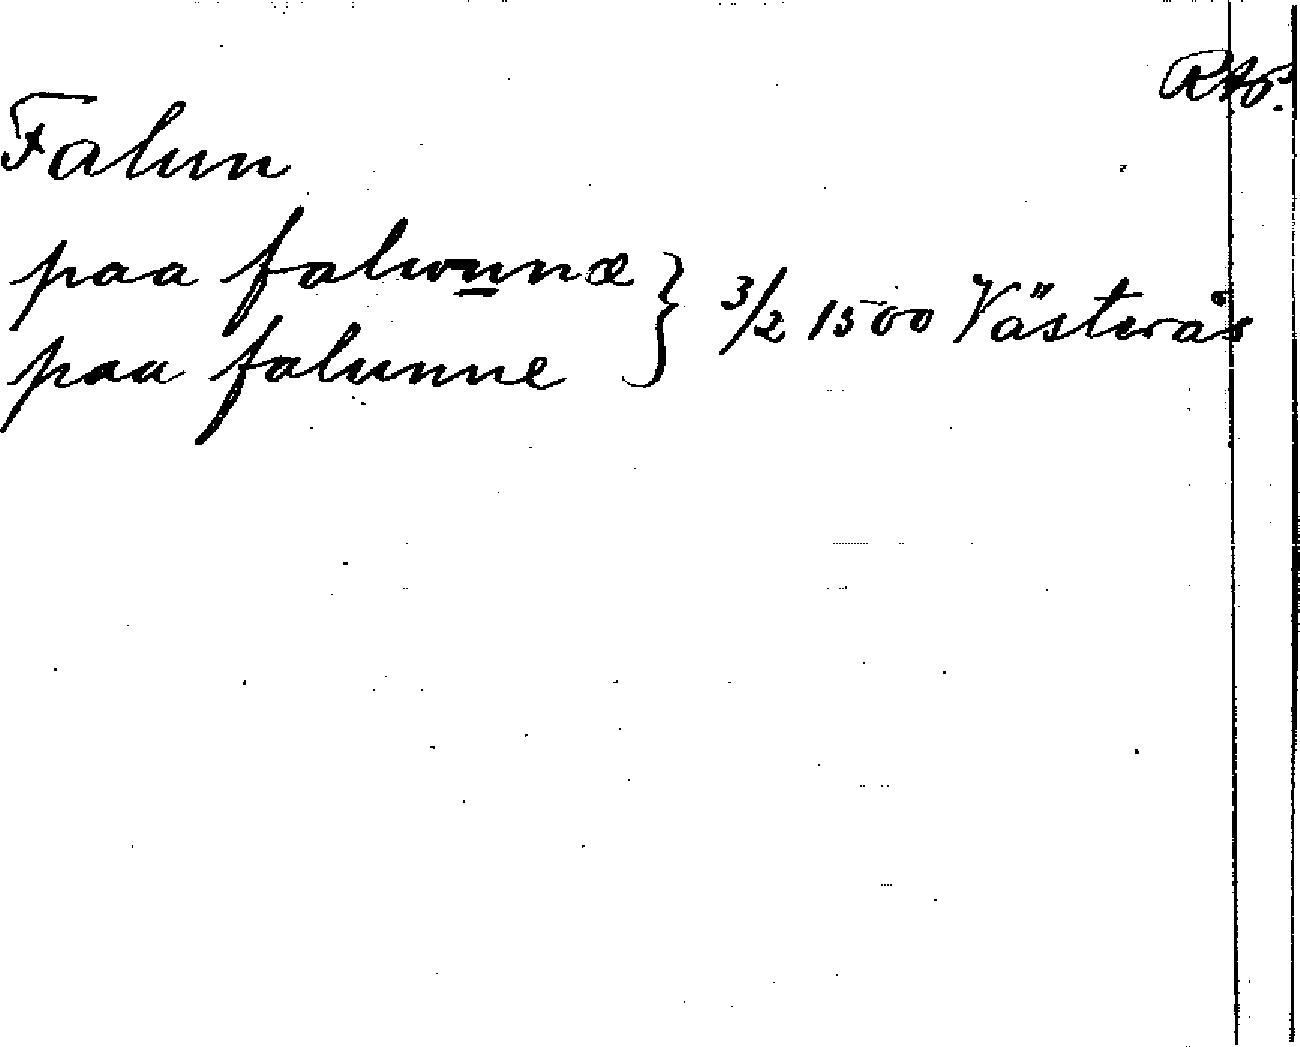 RAp.
Falun
paa falwnnæ } 3/2 1500 Västerås
paa falunne